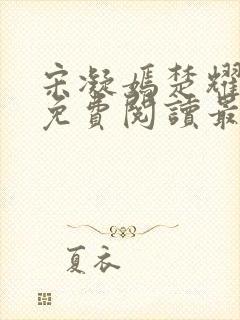 宋凝嫣楚耀
免費閱讀最
夏衣